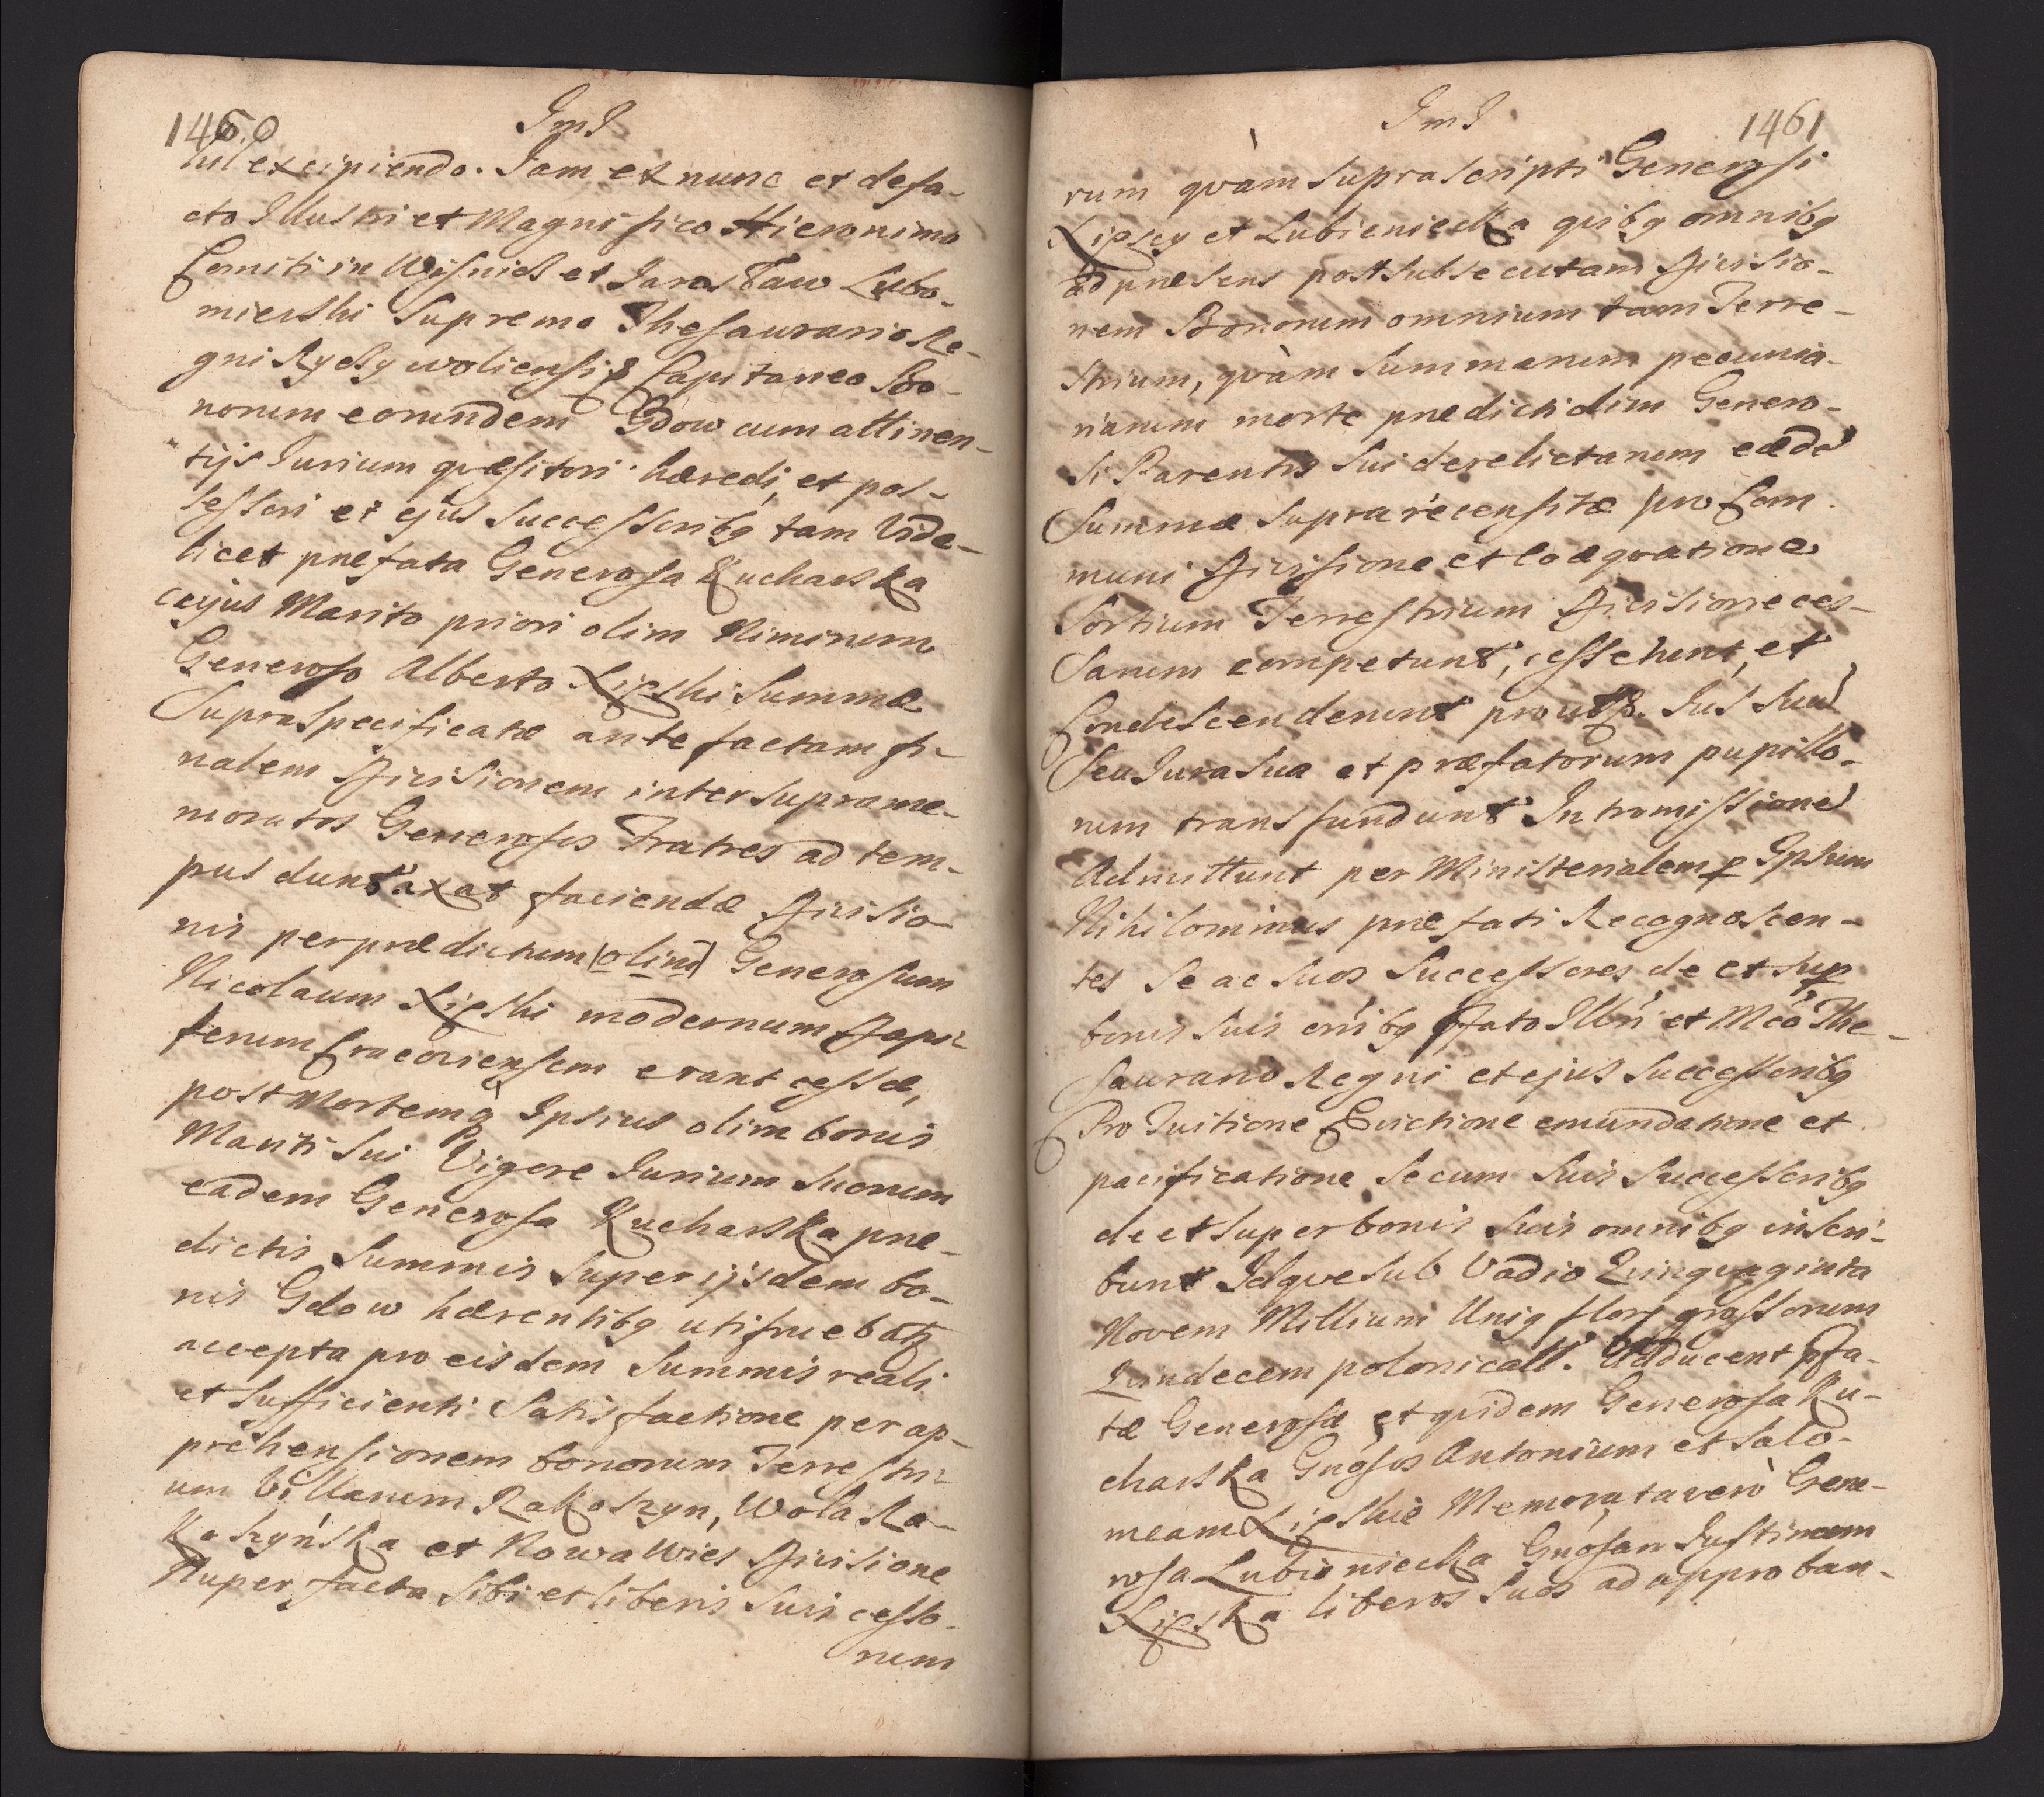 1460
ImI
hil excipiendo. Iam et nunc et defa-
cto Illustri et Magnifico Hieronimo
Comiti in Wisnics et Jarosław Lubo-
mierski Supremo Thesaurario Re-
gni Ryczywoliensi & Capitaneo Bo-
norum eorundem Gdow cum attinen-
tijs Iurium qvæsitori hæredi, et pos-
sessori et ejus Successoribq tam Vide-
licet præfata Generosa Kucharska
cujus Marito priori olim Nimirum
Generoso Alberto Lipski Summæ
Supraspecificatæ ante factam fi-
nalem Divisionem inter suprame-
moratos Generosos Fratres ad tem-
pus duntaxat faciendæ Divisio-
nis per prædictum (olim) Generosum
Nicolaum Lipski modernum Dapi-
ferum Cracoviensem erant cessæ,
post Mortemq Ipsius olim bonis
Mariti Sui Vigore Iurium Suorum
eadem Generosa Kucharska præ-
dictis Summis super ijsdem bo-
nis Gdow hærentibq uti fruebatz
accepta pro eisdem Summis reali
et sufficienti Satisfactione per ap-
prehensionem bonorum Terrestri-
um Villarum Rakoszyn, Wola Ra-
Koszyńska et Nowawies Divisione
Nuper facta Sibi et liberis Suis cesso-
rum
ImI
1461
rum qvàm suprascripti Generosi
Lipscy et Lubieniecka qvibq omnibq
ad præsens post subsecutam Divisio-
nem Bonorum omnium tam Terre-
strium, qvàm Summarum pecunia-
riarum morte prædicti olim Genero-
si Parentis Sui derelictarum eædē
Summæ supra recensitæ pro Com-
muni Divisione et Coæqvatione
Sortium Terrestrium Divisione ces-
sarum competunt, cesserunt, et
Condescenderunt prout & Ius Suū
Seu Iura Sua et præfatorum pupillo-
rum transfundunt Intromissionē
Admittunt per Ministerialem & Ipsum
Nihilominus præfati Recognoscen-
tes Se ac Suos Successores de et sup
bonis Suis oñibq pfato Illri et Mco The-
saurario Regni et ejus Successoribq
Pro Tuitione Evictione emundatione et
pacificatione Se cum Suis Successoribq
de et super bonis Suis omnibq inscri-
bunt Idqve sub Vadio Qvinqvaginta
Novem Millium Uniq flor grossorum
Qvindecem polonicall. Adducent pfa-
tæ Generosæ et qvidem Generosa Ku-
charska Gnosos Antonium et Salo-
meam Lipskie Memorata verò Gene-
rosa Lubieniecka Gnosam Iustinam
Lipska liberos Suos ad approban-